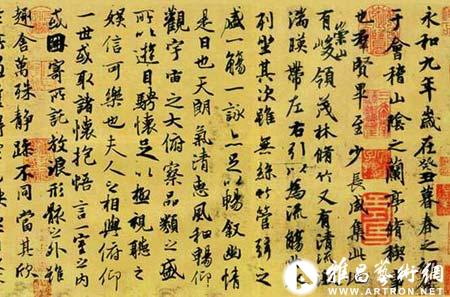 永和九年歲在癸丑暮春之初
于會稽山陰之蘭亭脩禊
也羣賢畢至少長咸集此
有崇山峻領茂林脩竹又有清流
湍暎帶左右引以為流觴
列坐其次雖無絲竹管弦之
盛一觴一詠亦足以暢敘幽情
是日也天朗氣清惠風和暢仰
觀宇宙之大俯察品類之盛
所以遊目騁懷足以極視聽之
娛信可樂也夫人之相與俯仰
一世或取諸懷抱悟言一室之內
或因寄所託放浪形骸之外雖
趣舍萬殊靜躁不同當其欣
雅昌藝術網
WWW.ARTRON.NET